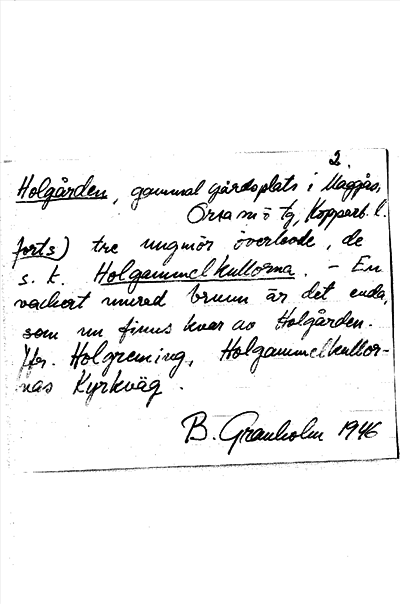 2.
Holgården, gammal gårdsplats i Maggås,
Orsa sn o tg, Kopparb. l.
forts) tre ungmör överlevde, de
s. k Holgammelkullorna. – En
vackert murad brunn är det enda,
som nu finns kvar av Holgården.
Jfr. Holgreming, Holgammelkullor-
nas Kyrkväg.
B. Granholm 1946